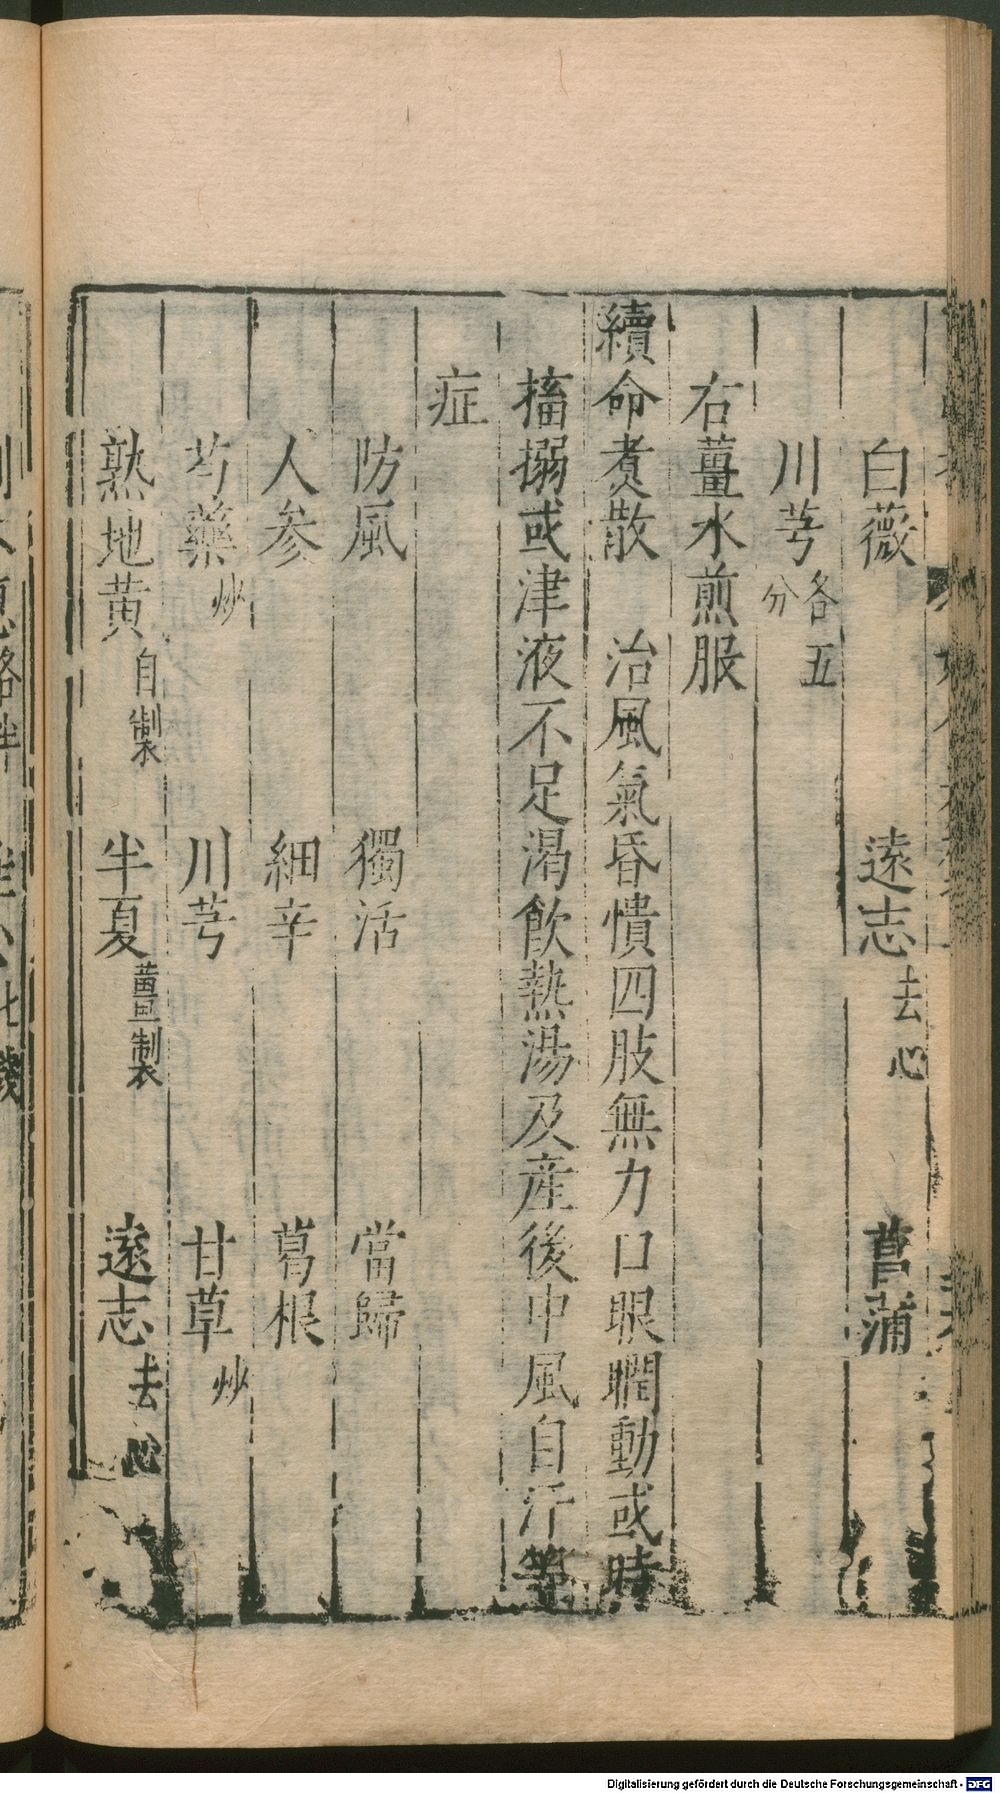 白薇　遠志去心　菖蒲
川芎各五分
右薑水煎服
續命煮散　治風氣昏憒四肢無力口眼瞤動或時
搐搦或津液不足渴飲熱湯及産後中風自汗等
症
防風　獨活　當歸
人参　細辛　葛根
芍藥炒　川芎　甘草炒
熟地黄自製　半夏薑製　遠志去心
Digitalisierung gefördert durch die Deutsche Forschungsgemeinschaft - DFG